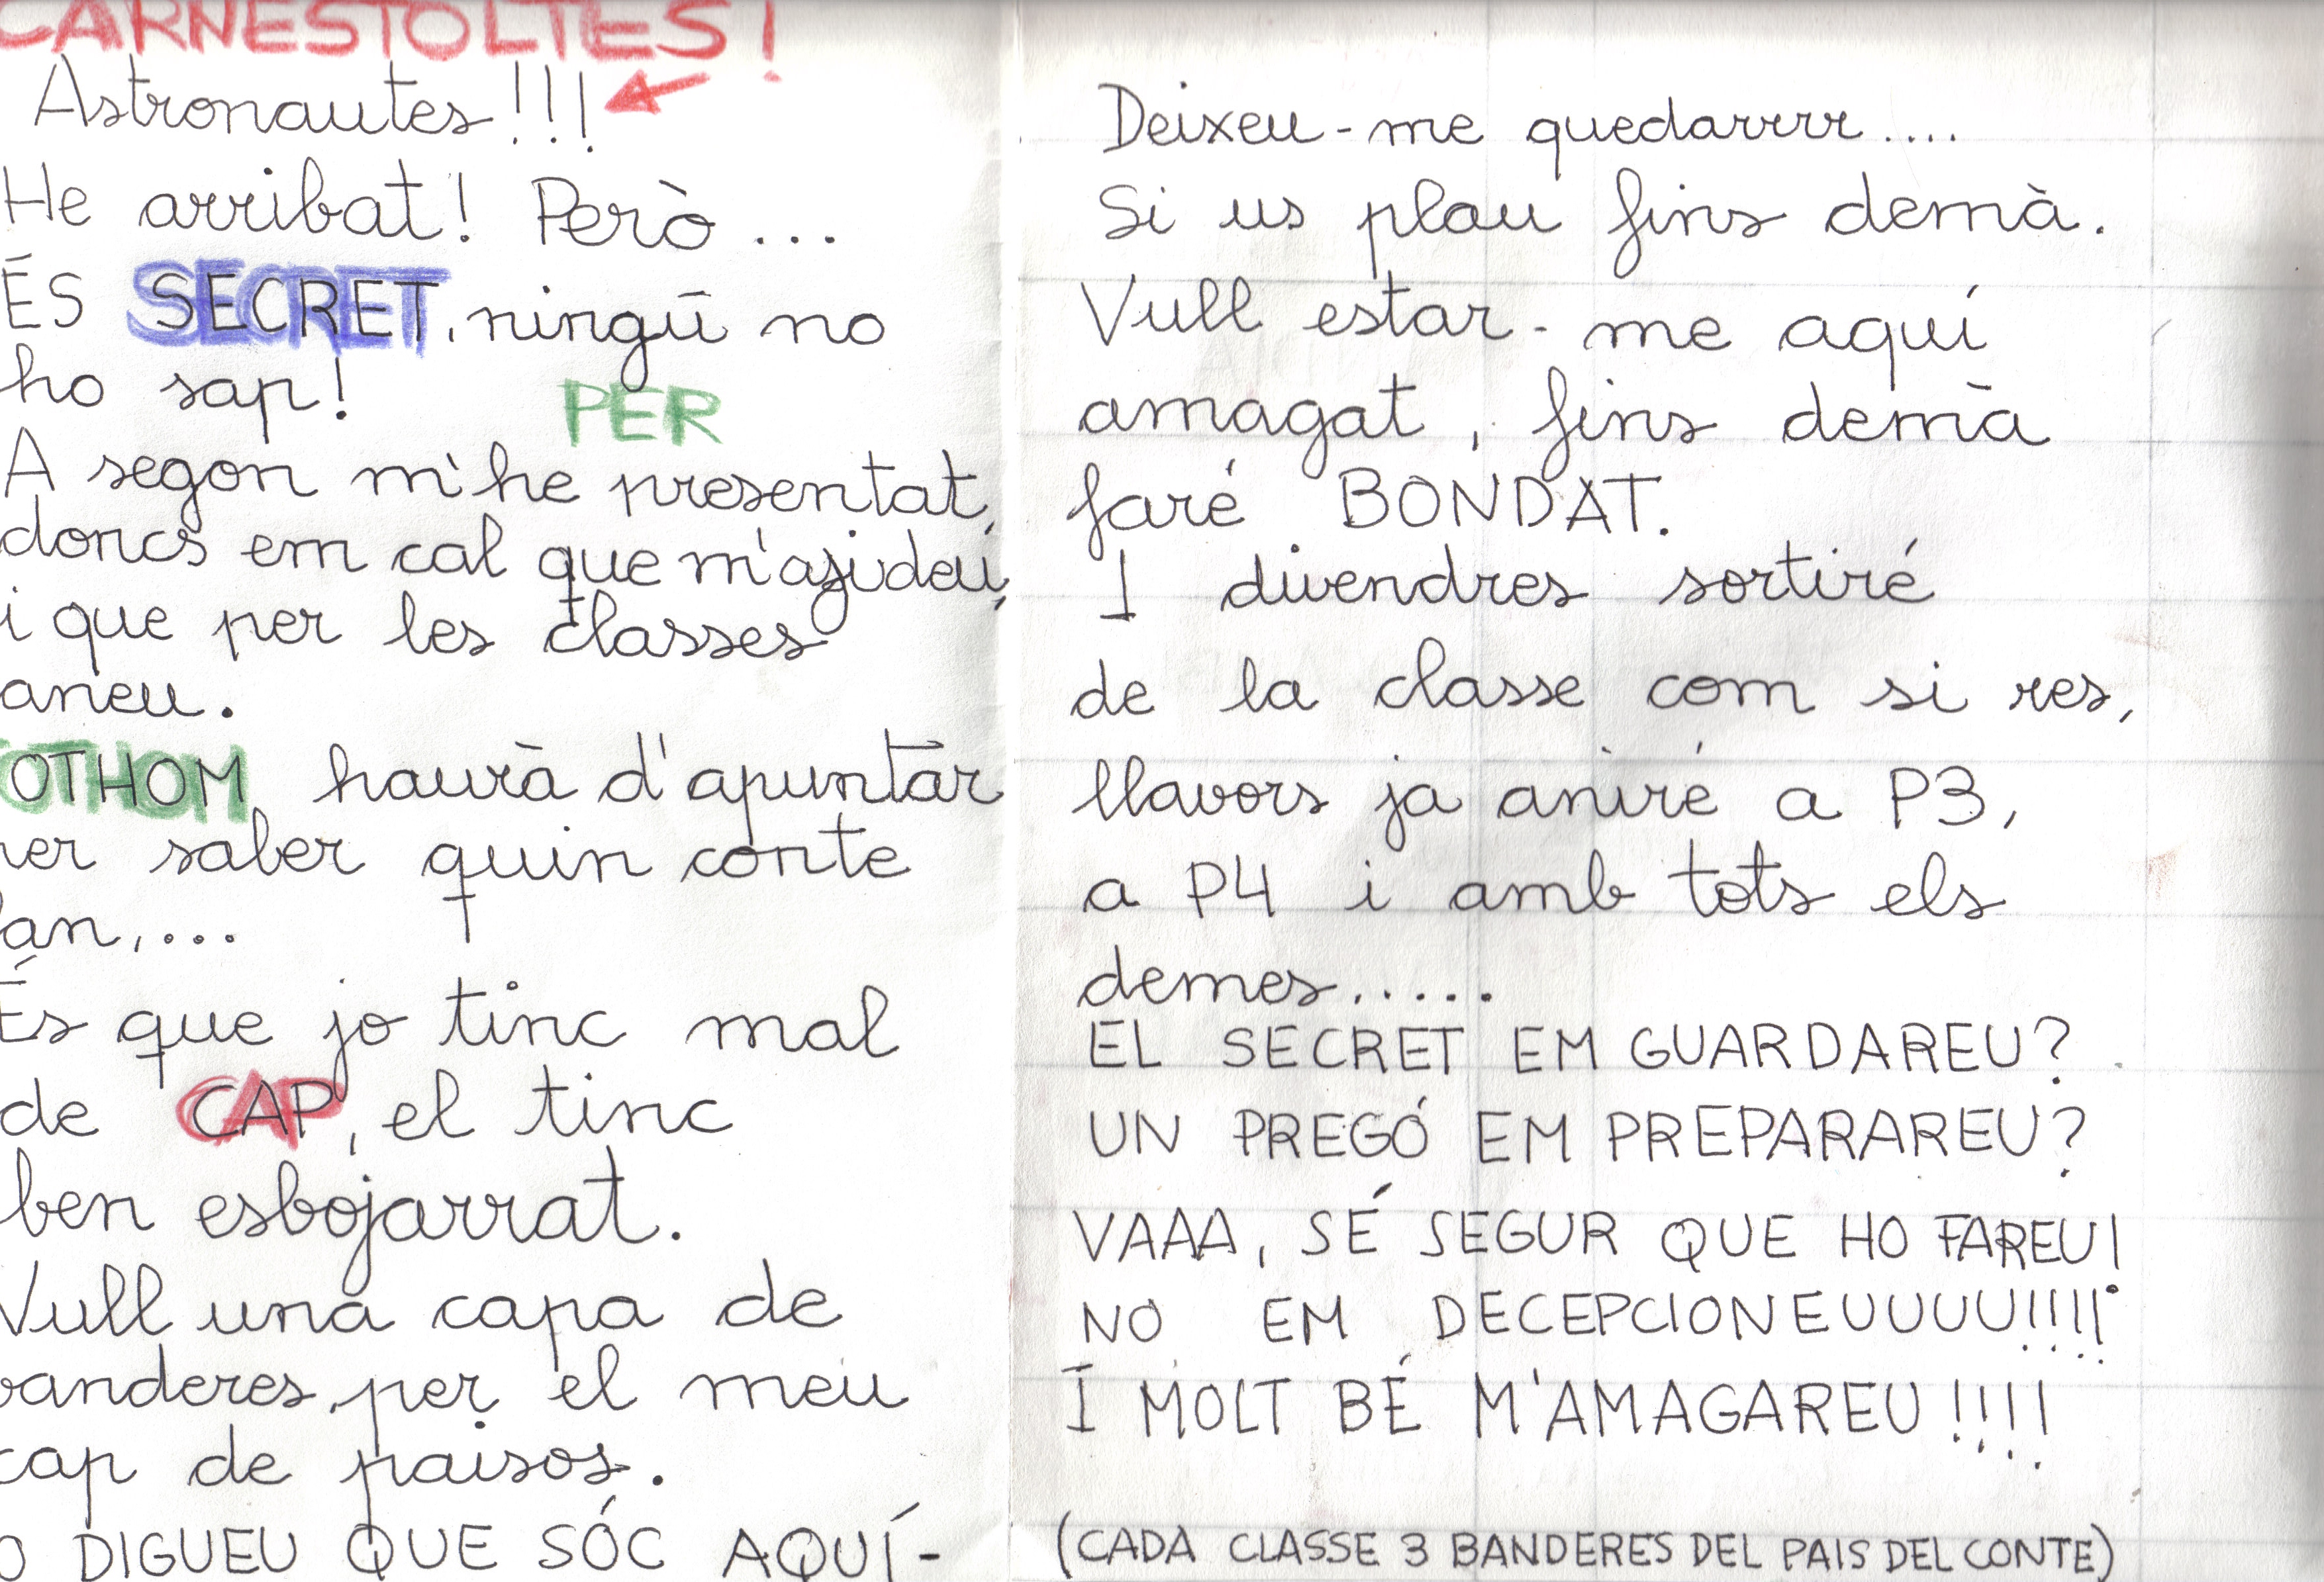 CARNESTOLTES!
Astronautes!!!
He arribat! Però ...
ÉS SECRET, ningú no
ho sap!
PER
A segon m'he presentat,
doncs em cal que m'ajudeu,
i que per les classes
aneu.
TOTHOM haurà d'apuntar
per saber quin conte
fan,...
És que jo tinc mal
de CAP, el tinc
ben esbojarrat.
Vull una capa de
banderes, per el meu
cap de paisos.
O DIGUEU QUE SÓC AQUÍ-
Deixeu-me quedarrrr....
Si us plau fins demà.
Vull estar-me aquí
amagat, fins demà
faré BONDAT.
I divendres sortiré
de la classe com si res,
llavors ja aniré a P3,
a P4 i amb tots els
demes.....
EL SECRET EM GUARDAREU?
UN PREGÓ EM PREPARAREU?
VAAA, SÉ SEGUR QUE HO FAREU!
NO EM DECEPCIONEUUUU!!!!
I MOLT BÉ M'AMAGAREU!!!!
(CADA CLASSE 3 BANDERES DEL PAIS DEL CONTE)